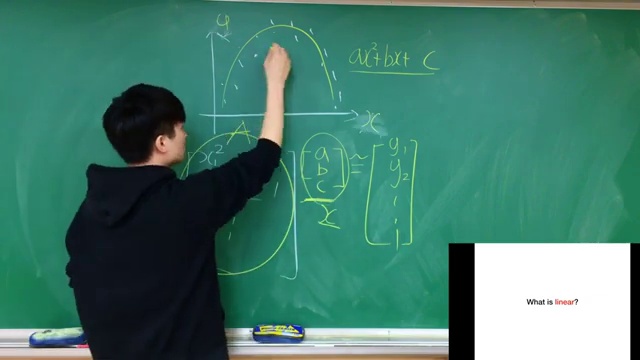 y
ax²+bx+ c
x
A
x²
a
b
c
≈
y₁
y₂
x
What is linear?